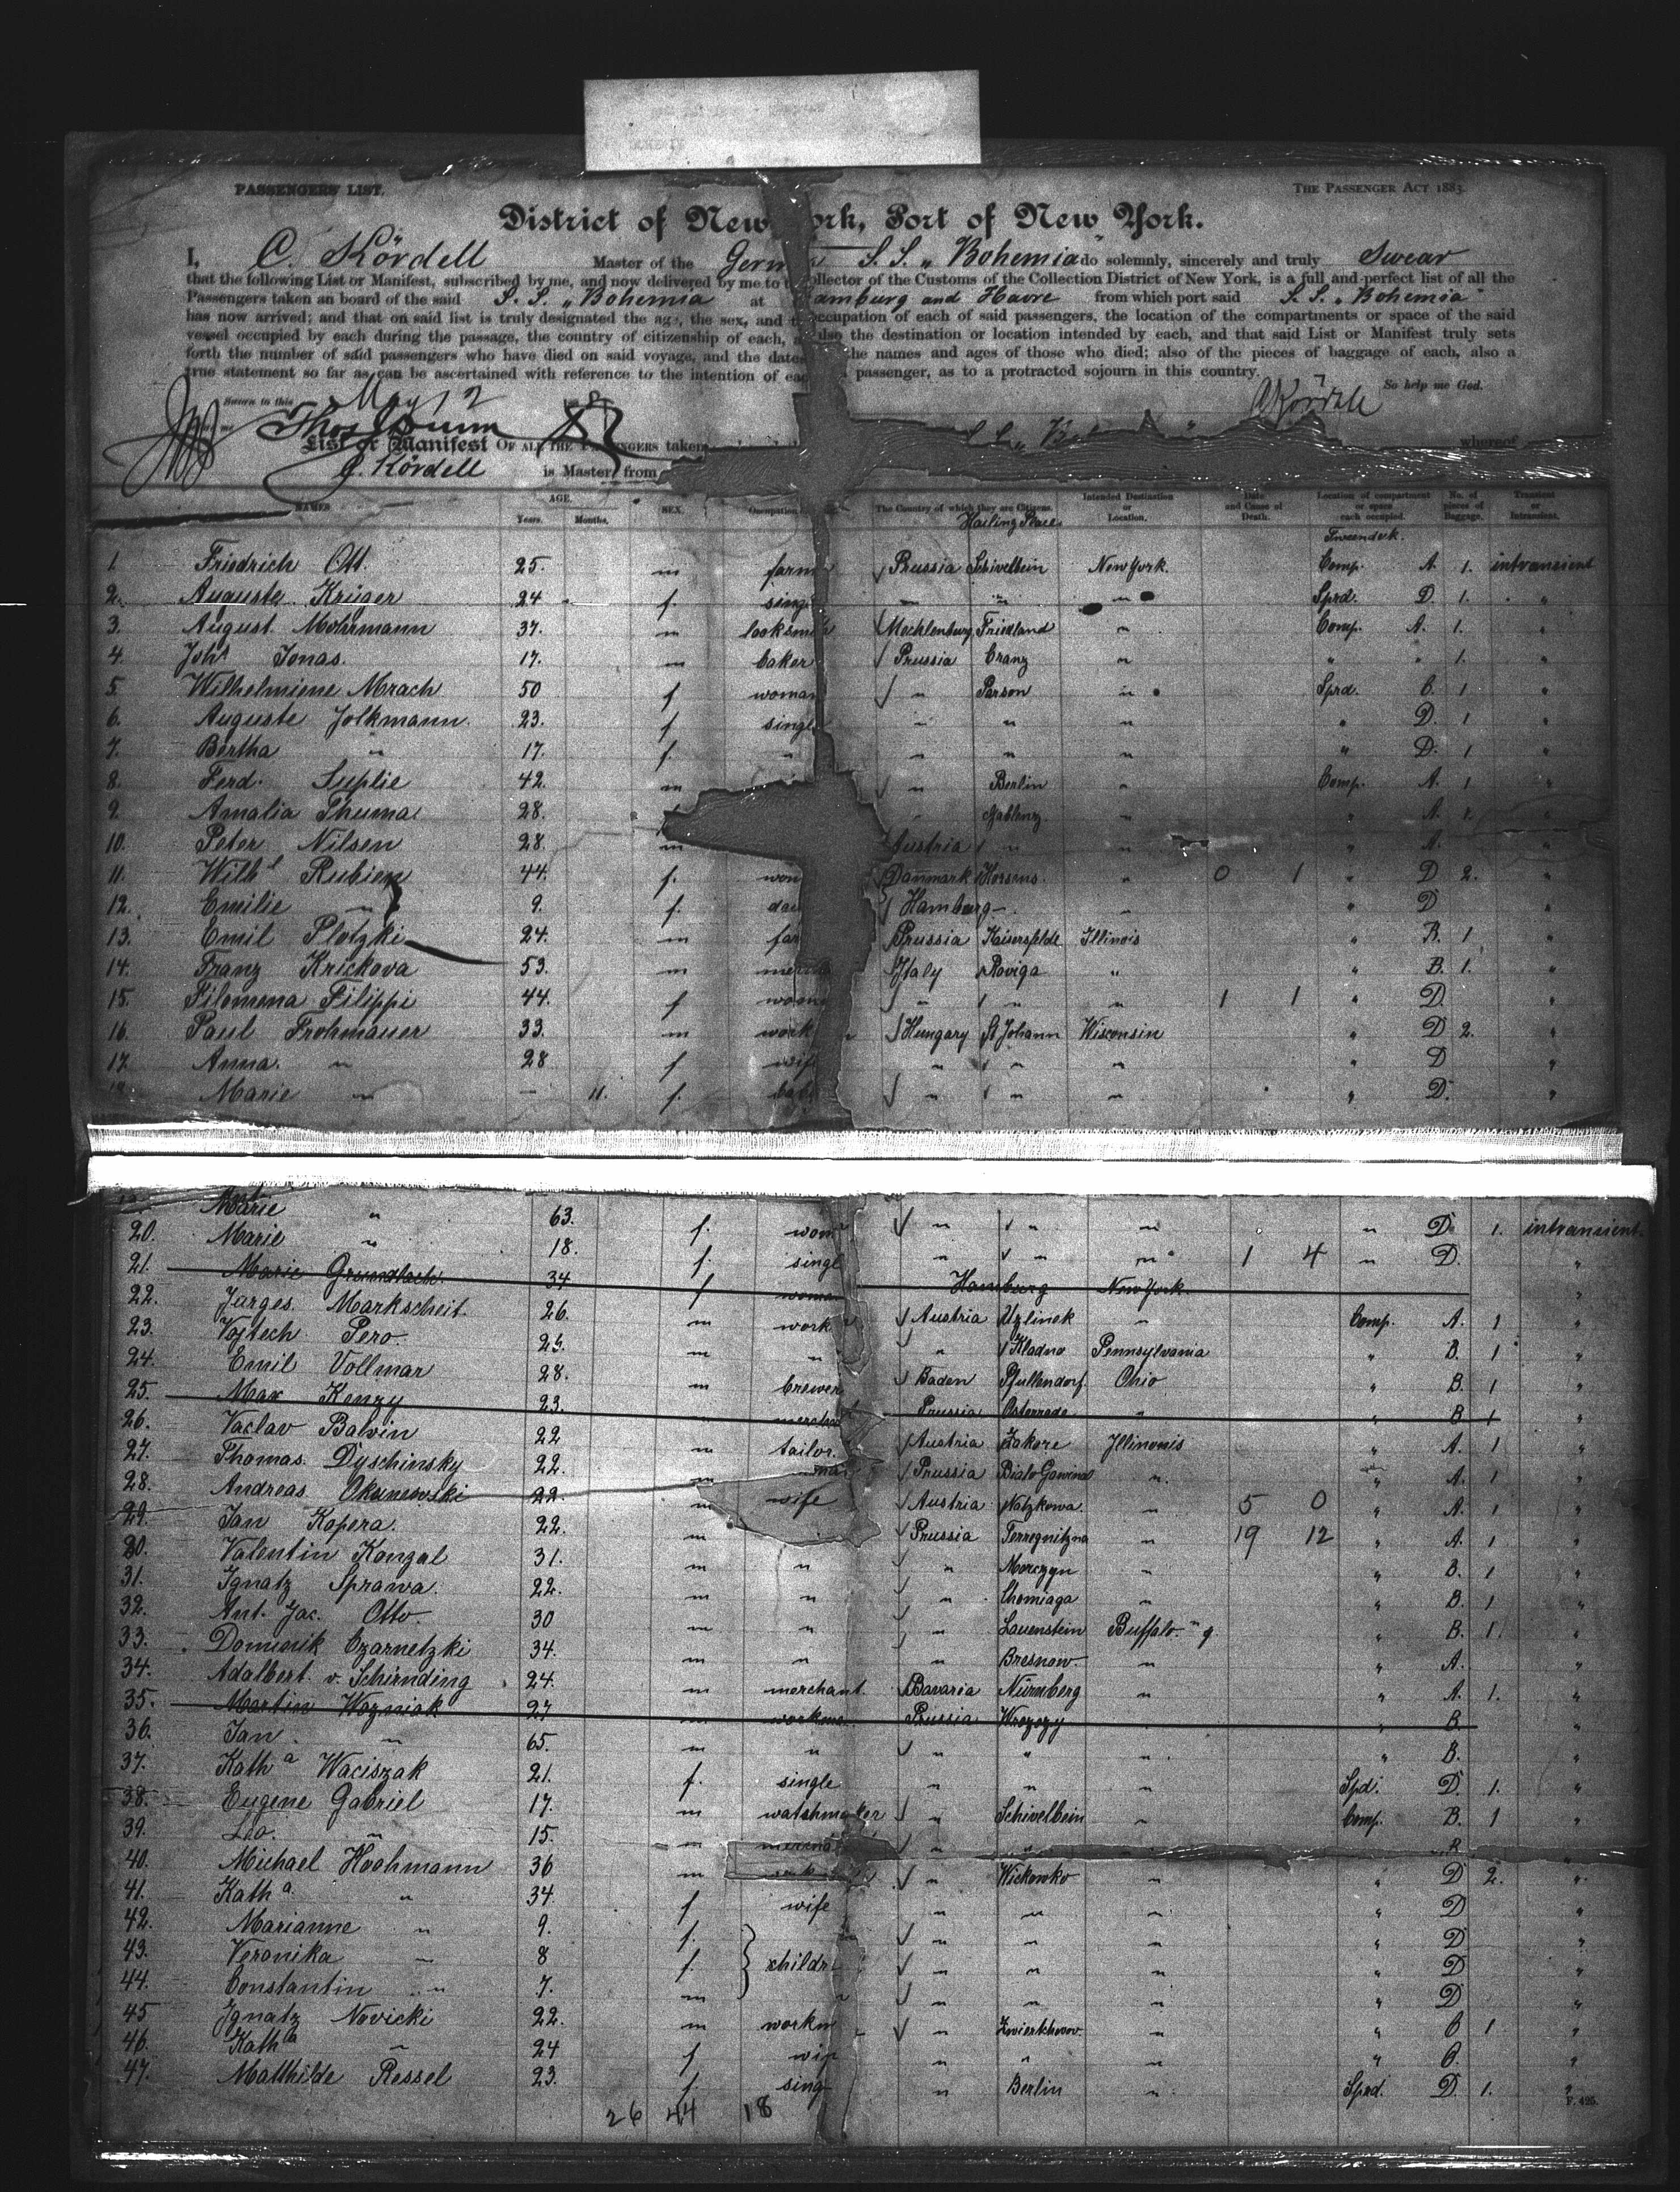 PASSENGERS' LIST.
THE PASSENGER ACT 1883.
District of New York, Port of New York.
I, C. Kördell Master of the Germ S. S. „Bohemia" do solemnly, sincerely and truly Swear
that the following List or Manifest, subscribed by me, and now delivered by me to the Collector of the Customs of the Collection District of New York, is a full and perfect list of all the
Passengers taken an board of the said S. S. „Bohemia at Hamburg and Havre from which port said S. S. „Bohemia"
has now arrived; and that on said list is truly designated the age, the sex, and the occupation of each of said passengers, the location of the compartments or space of the said
vessel occupied by each during the passage, the country of citizenship of each, also the destination or location intended by each, and that said List or Manifest truly sets
forth the number of said passengers who have died on said voyage, and the dates the names and ages of those who died; also of the pieces of baggage of each, also a
true statement so far as can be ascertained with reference to the intention of each passenger, as to a protracted sojourn in this country.
So help me God.
Sworn to this May 12 87
CKördell
me Thos Dunn
List or Manifest OF ALL THE PASSENGERS taken S. S. „ whereof
C. Kördell is Master, from
NAMES AGE. Years. Months. SEX. Occupation The Country of which they are Citizens. Hailing Place. Intended Destination or Location. Date and Cause of Death. Location of compartment or space each occupied. No. of pieces of Baggage. Transient or Intransient.
Tweendeck.
1. Friedrich Ott. 25. m farm Prussia Schivelbein New York. Comp. A. 1. intransient
2. Auguste Krüger 24 f. sing " " " Sprd. D. 1. "
3. August Mohrmann 37. m locksmi Mecklenburg Friedland " Comp. A. 1. "
4. Joh^s Jonas. 17. m baker Prussia Cranz " " " 1. "
5. Wilhelmiene Mrach 50 f woman " Parson " Sprd. C. 1 "
6. Auguste Jolkmann 23. f singl " " " " D. 1 "
7. Bertha " 17. f. " " " " " D. 1 "
8. Ferd. Suplie 42. m " Berlin " Comp. A. 1 "
9. Amalia Thuma 28. " Gablenz " " A. 1. "
10. Peter Nilsen 28. m Austria " " " A. "
11. Wilh^e Rubien 44. f. wom Danmark Horsens " 0 1 " D 2. "
12. Emilie " 9. f. dau Hamburg " " D "
13. Emil Plotzki 24. m far Prussia Kaisersfelde Illinois " B. 1 "
14. Franz Krickova 53. m Italy Roviga " " B. 1. "
15. Filomena Filippi 44. f woma " " " 1 1 " D. "
16. Paul Frohmauer 33. m work Hungary St Johann Wisconsin " D 2. "
17. Anna. " 28 f wif " " " D "
Marie " — 11. f. bab " " " " D. "
Marie " 63. f. wom " " " " D 1. intransient
20. Marie " 18. f. singl " " " 1 4 " D. "
21. Marie Grundlach 34 f woman Hamburg New York. "
22. Jurges. Markscheit. 26. m work Austria Uzlinek " Comp. A. 1 "
23. Vojtech Pero. 25. m " " Kladno Pennsylvania " B. 1 "
24. Emil Vollmar 28. m brewer Baden Pfullendorf Ohio " B. 1 "
25. Max Konzy 23. Prussia Osterrode " " B 1 "
26. Vaclav Balvin 22 m tailor. Austria Zakore Jllinonis " A. 1 "
27. Thomas Dyschinsky 22. m Prussia " " A. 1 "
28. Andreas Okunewski 22. m wife Austria Natzkowa " 5 0 " A. 1 "
29. Jan Kopera. 22. m Prussia " 19 12 " A. 1 "
30. Valentin Konzal 31. m " " Morczyn " " B. 1 "
31. Ignatz Sprawa. 22. m " " Chomiaga " " B. 1 "
32. Ant. Jac. Otto 30 m " " Lauenstein Buffalo " B. 1. "
33. Dominik Czarnetzki 34. m " " Bresnow " " A. "
34. Adalbert v. Schirnding 24. m merchant. Bavaria Nürnberg " " A. 1. "
35. Martin Wozniak 27 m workma Prussia Wrozozy " " B. "
36. Jan " 65. m " " " " " B. "
37. Kath^a Waciszak 21. f. single " " " Spd. D. 1. "
38. Eugene Gabriel 17. m watchmaker " Schivelbein " Comp. B. 1 "
39. Leo. " 15. m " " B. "
40. Michael Hochmann 36 m " Wickowko " " D 2. "
41. Kath^a " 34 f wife " " " " D "
42. Marianne " 9. f. " " " " D "
43. Veronika " 8 f. childr " " " " D "
44. Constantin " 7. m " " " " D "
45 Ignatz Novicki 22. m workm " " " C 1. "
46. Kath^a " 24 f wif " " " " C. "
47. Matthilde Ressel 23. f. sing " Berlin " Sprd. D. 1. "
26 44 18
F. 425.